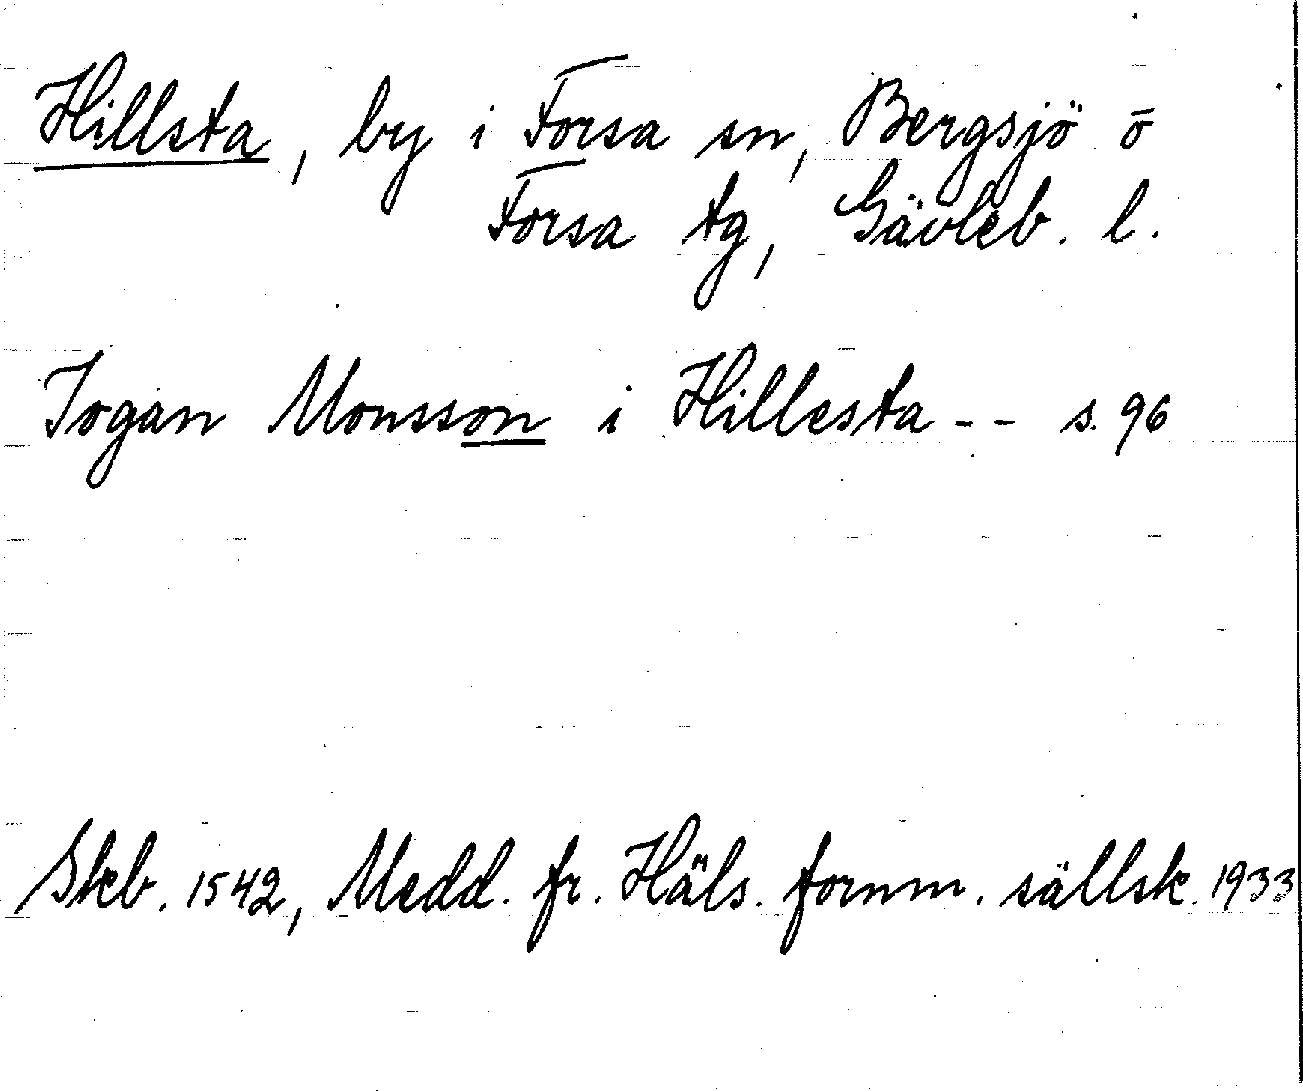 Hillsta, by i Forsa sn, Bergsjö o
Forsa tg, Gävleb. l.
Jogan Monsson i Hillesta -- s. 96
Skb. 1542, Medd. fr. Häls. fornm. sällsk. 1933